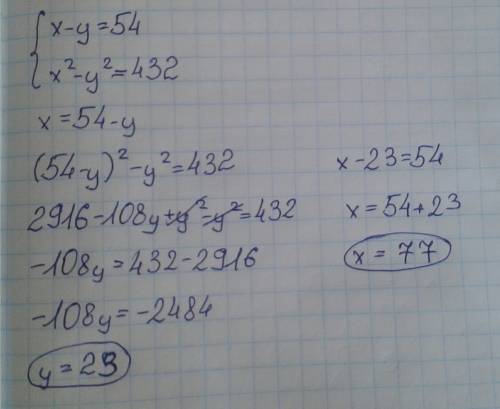 x-y=54
x²-y²=432
x=54-y
(54-y)²-y²=432
2916-108y+y²-y²=432
-108y=432-2916
-108y=-2484
y=23
x-23=54
x=54+23
x=77